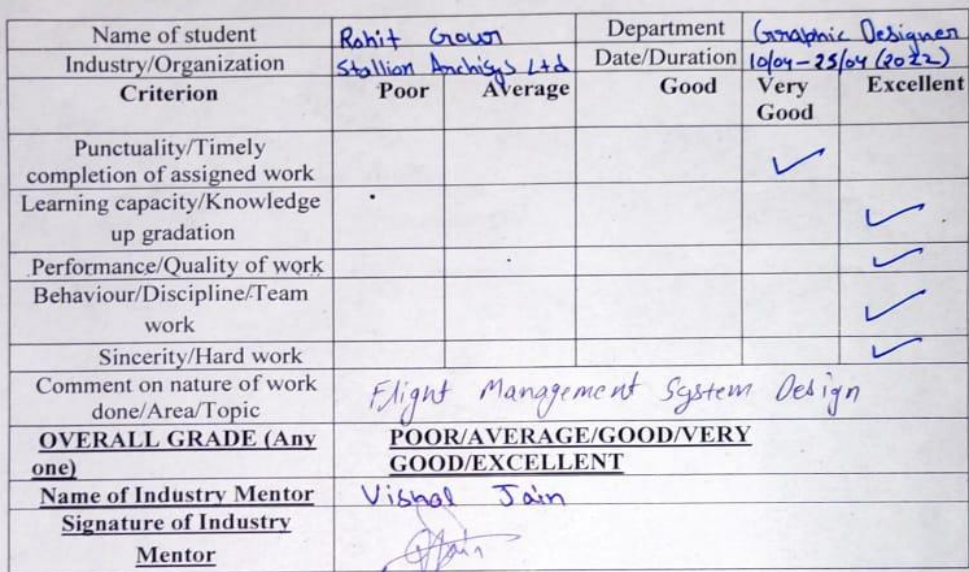 Name of student Rohit Gour Department Graphic Designer
Industry/Organization Stallion Archisys Ltd Date/Duration 10/04-25/04 (2022)
Criterion Poor Average Good Very Good Excellent
Punctuality/Timely
completion of assigned work
Learning capacity/Knowledge
up gradation
Performance/Quality of work
Behaviour/Discipline/Team
work
Sincerity/Hard work
Comment on nature of work
done/Area/Topic
Flight Management System Design
OVERALL GRADE (Any
one)
POOR/AVERAGE/GOOD/VERY
GOOD/EXCELLENT
Name of Industry Mentor Vishal Jain
Signature of Industry
Mentor